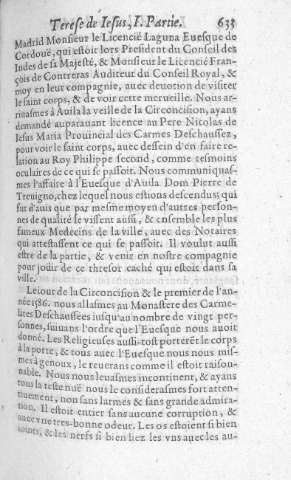 Terese de Iesus, I. Partie. 633
Madrid Monsieur le Licencié Laguna Euesque de
Cordoüe, qui estoit lors President du Conseil des
Indes de sa Majesté, & Monsieur le Licencié Fran-
çois de Contreras Auditeur du Conseil Royal, &
moy en leur compagnie, auec deuotion de visiter
le saint corps, & de voir cette merueille. Nous ar-
riuasmes à Auila la veille de la Circoncision, ayans
demandé auparauant licence au Pere Nicolas de
Iesus Maria Prouincial des Carmes Deschaussez,
pour voir le saint corps, auec dessein d'en faire re-
lation au Roy Philippe second, comme tesmoins
oculaires de ce qui se passoit. Nous communiquas-
mes l'affaire à l'Euesque d'Auila Dom Pierre de
Treuigno, chez lequel nous estions descendus; qui
fut d'auis que par mesme moyen d'autres person-
nes de qualité se vissent aussi, & ensemble les plus
fameux Medecins de la ville, auec des Notaires
qui attestassent ce qui se passoit. Il voulut aussi
estre de la partie, & venir en nostre compagnie
pour joüir de ce thresor caché qui estoit dans sa
ville.
Le iour de la Circoncision & le premier de l'an-
née 1586. nous allasmes au Monastere des Carme-
lites Deschaussées jusqu'au nombre de vingt per-
sonnes, suiuans l'ordre que l'Euesque nous auoit
donné. Les Religieuses aussi-tost porterét le corps
à la porte, & tous auec l'Euesque nous nous mis-
mes à genoux, le reuerans comme il estoit raison-
nable. Nous nous leuasmes incontinent, & ayans
tous la teste nuë nous le considerasmes fort atten-
tiuement, non sans larmes & sans grande admira-
tion. Il estoit entier sans aucune corruption, &
auec vne tres-bonne odeur. Les os estoient si bien
joints, & les nerfs si bien liez les vns auec les au-